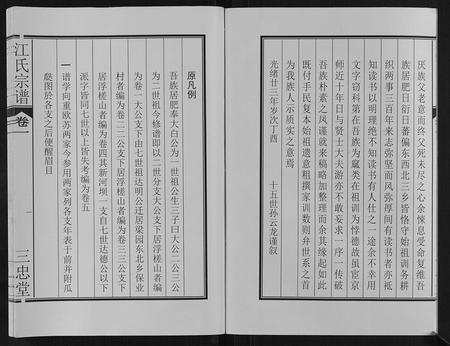 厌族父老意而终父死未尽之心余惴息受命复维吾
族居肥日衍日蕃偏东西北三乡皆恪守始祖训务耕
织两事三百年来志弥坚而风弥厚间有读书者亦祗
知读书以明理绝不知读书有人仕之一途余不幸用
文字窃科第在吾族为庬类在祖训为悖德故虽宦京
师近十年日与贤士大夫游亦不敢妄求一序一传破
吾族朴素之风谨就来稿略加整理而余其缘起如此
既付手民复本始祖遗意粗撰家训数则弁世系之首
为我族人示质实之意焉
光绪廿三年岁次丁酉
十五世孙云龙谨叙
原凡例
吾族居肥奉大白公为一世祖公生三子曰大公二公三公
为二世祖今修谱即以二世分支大公支下居浮槎山者编
为卷一大公支下由七世祖达明公迁居梁园东北乡保业
村者编为卷二二公支下居浮槎山者编为卷三三公支下
居浮槎山者编为卷四其新河坝一支自七世达德公以下
派字皆同七世以上皆失考编为卷五
一 谱学向重欧苏两家今参用两家列各支年表于前并附瓜
瓞图於各支之后使醒眉目
江氏宗谱
卷一
三忠堂